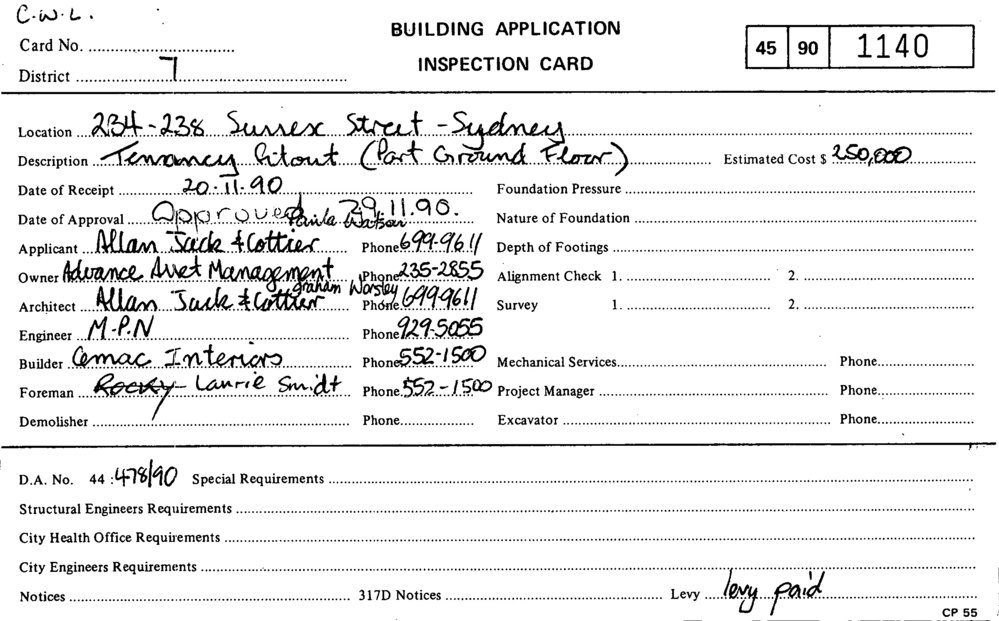 C.W.L.
BUILDING APPLICATION
INSPECTION CARD
45 90 1140
Card No.
District 7
Location 234-238 Sussex Street - Sydney
Description Tenancy fitout (Part Ground Floor) Estimated Cost $ 250,000
Date of Receipt 20.11.90 Foundation Pressure
Date of Approval Approved 29.11.90. Paula Watson Nature of Foundation
Applicant Allan Jack & Cottier Phone 699-9611 Depth of Footings
Owner Advance Asset Management Phone 235-2855 Alignment Check 1. 2.
Graham Worsley
Architect Allan Jack & Cottier Phone 699-9611 Survey 1. 2.
Engineer M.P.N Phone 929-5055
Builder Cemac Interiors Phone 552-1500 Mechanical Services Phone
Foreman Rocky Laurie Smidt Phone 552-1500 Project Manager Phone
Demolisher Phone Excavator Phone
D.A. No. 44 : 478/90 Special Requirements
Structural Engineers Requirements
City Health Office Requirements
City Engineers Requirements
Notices 317D Notices Levy levy paid
CP 55